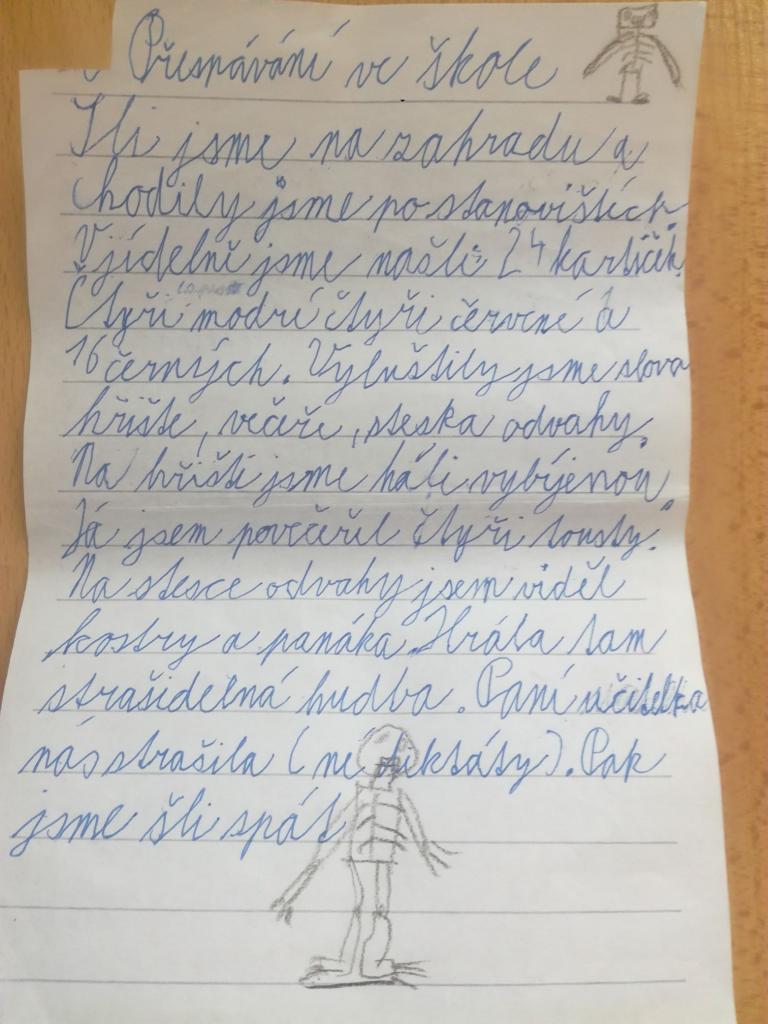 Přespávání ve škole
Šli jsme na zahradu a
chodily jsme po stanovištích.
V jídelně jsme našli 24 kartiček.
Čtyři modrí čtyři červené a
16 černých. Vyluštily jsme slova
hřiště, večeře, steska odvahy.
Na hřišti jsme háli vybíjenou
Já jsem povečeřil čtyři tousty.
Na stesce odvahy jsem viděl
kostry a panáka. Hrála tam
strašidelná hudba. Paní učitelka
nás strašila (ne diktáty). Pak
jsme šli spát